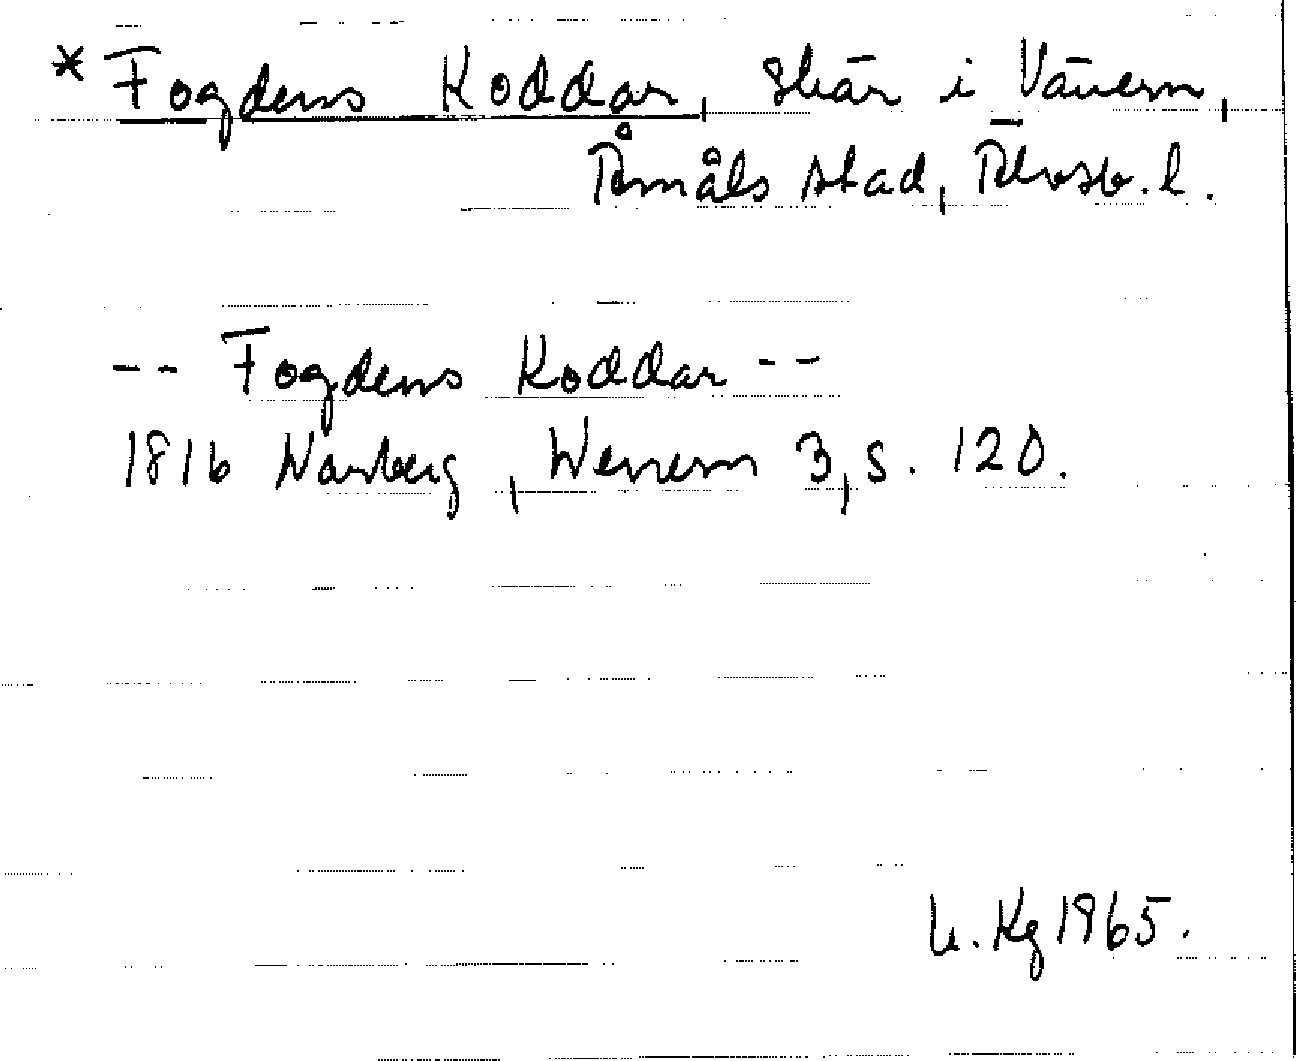 * Fogdens Koddar, skär i Vänern,
Åmåls stad, Älvsb. l.
-- Fogdens Koddar --
1816 Warberg, Wenern 3, s. 120.
Kg 1965.